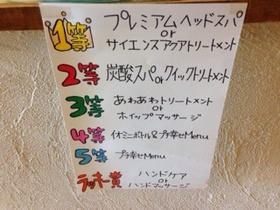 1等
プレミアムヘッドスパ
or
サイエンスアクアトリートメント
2等 炭酸スパorクイックトリートメント
3等 あわあわトリートメント
or
ホイップマッサージ
4等 ミニボトル&プチ幸せMenu
5等 プチ幸せMenu
ラッキー賞 ハンドケア
or
ハンドマッサージ